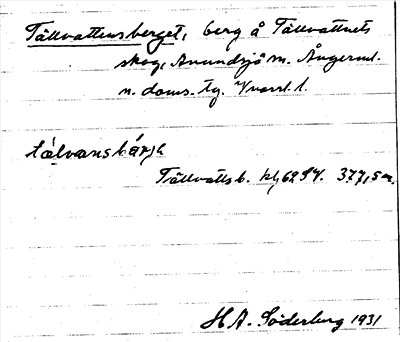 Tällvattensberget, berg å Tällvattnets
skog, Anundsjö sn. Ångerml.
n. doms. tg. Vnorrl. l.
tälvansbärjə
Tällvattsb. kbl 62 SV. 377,5 m.
H A. Söderberg 1931